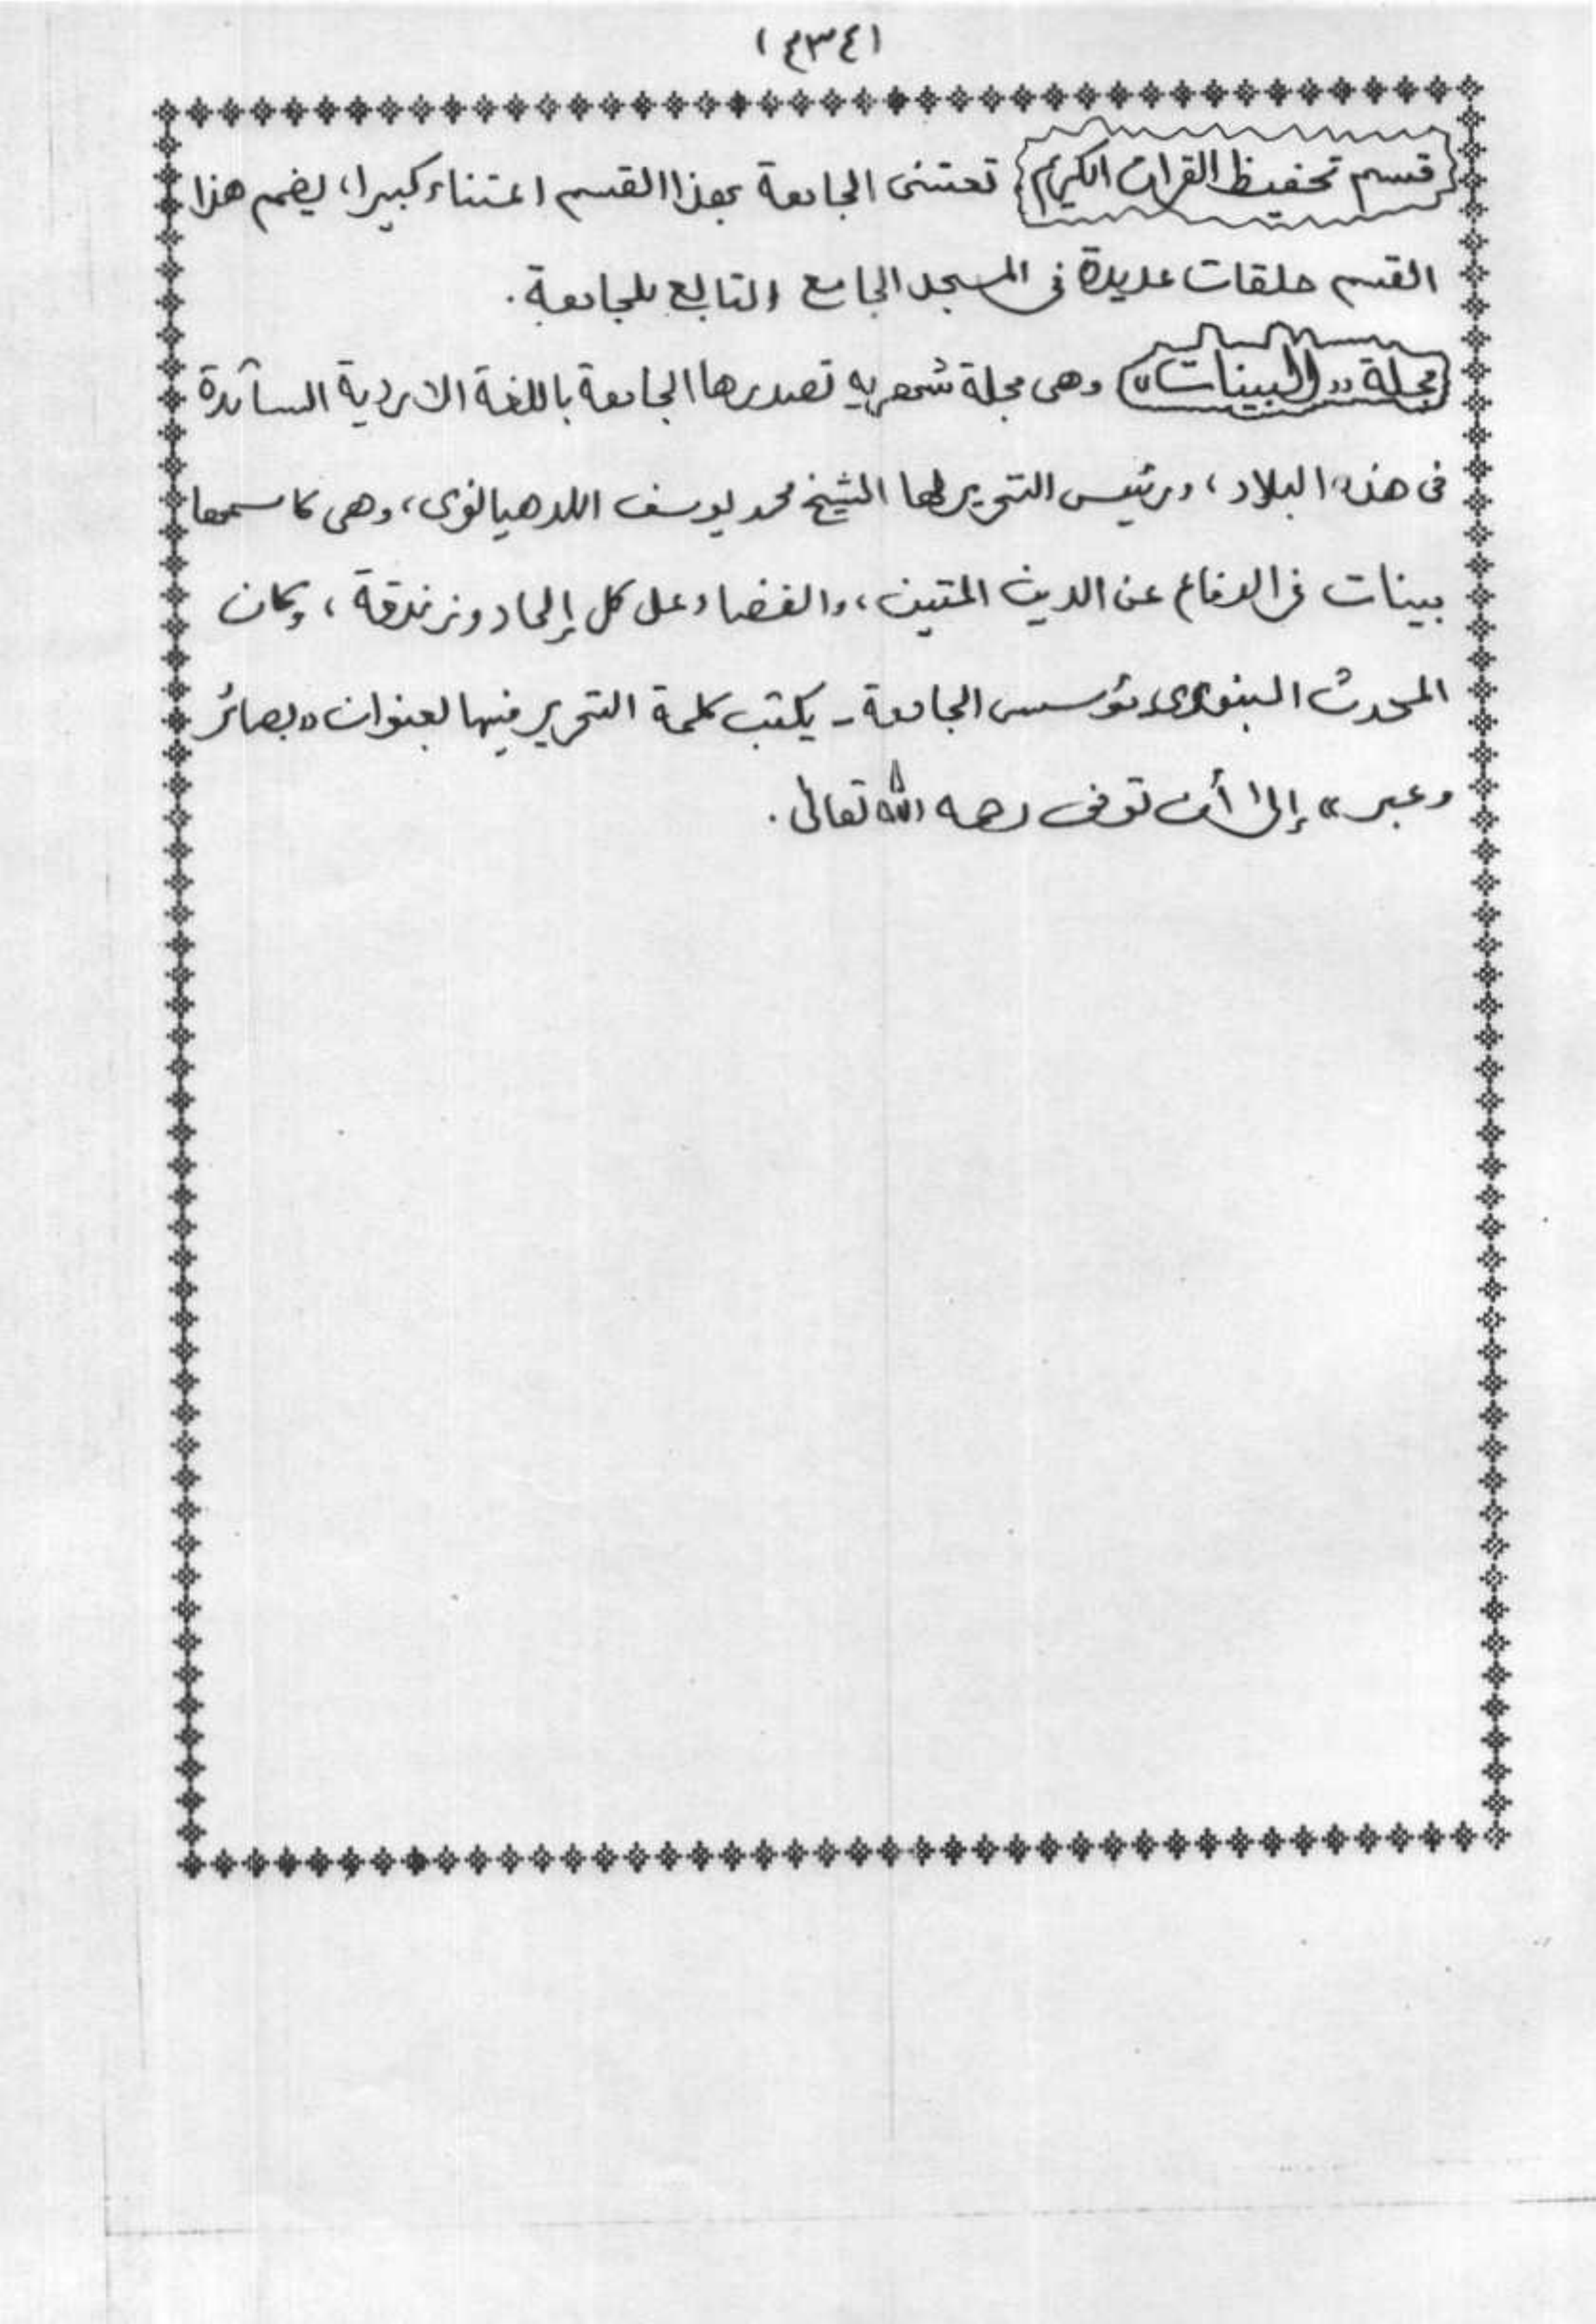 (٤٣٤)
قسم تحفيظ القران الكريم تعتنى الجامعة بهذا القسم اعتناء كبيرا، يضم هذا
القسم حلقات عديدة فى المسجد الجامع التابع للجامعة.
مجلة "البينات" وهى مجلة شهريه تصدرها الجامعة باللغة الاردية السائدة
فى هذه البلاد، ورئيس التحرير لها الشيخ محمد يوسف اللدهيانوى، وهى كاسمها
بينات فى الدفاع عن الدين المتين، والقضاء على كل إلحاد وزندقة، وكان
المحدث البنورى مؤسس الجامعة - يكتب كلمة التحرير فيها بعنوان "بصائر
وعبر" إلى أن توفى رحمه الله تعالى.